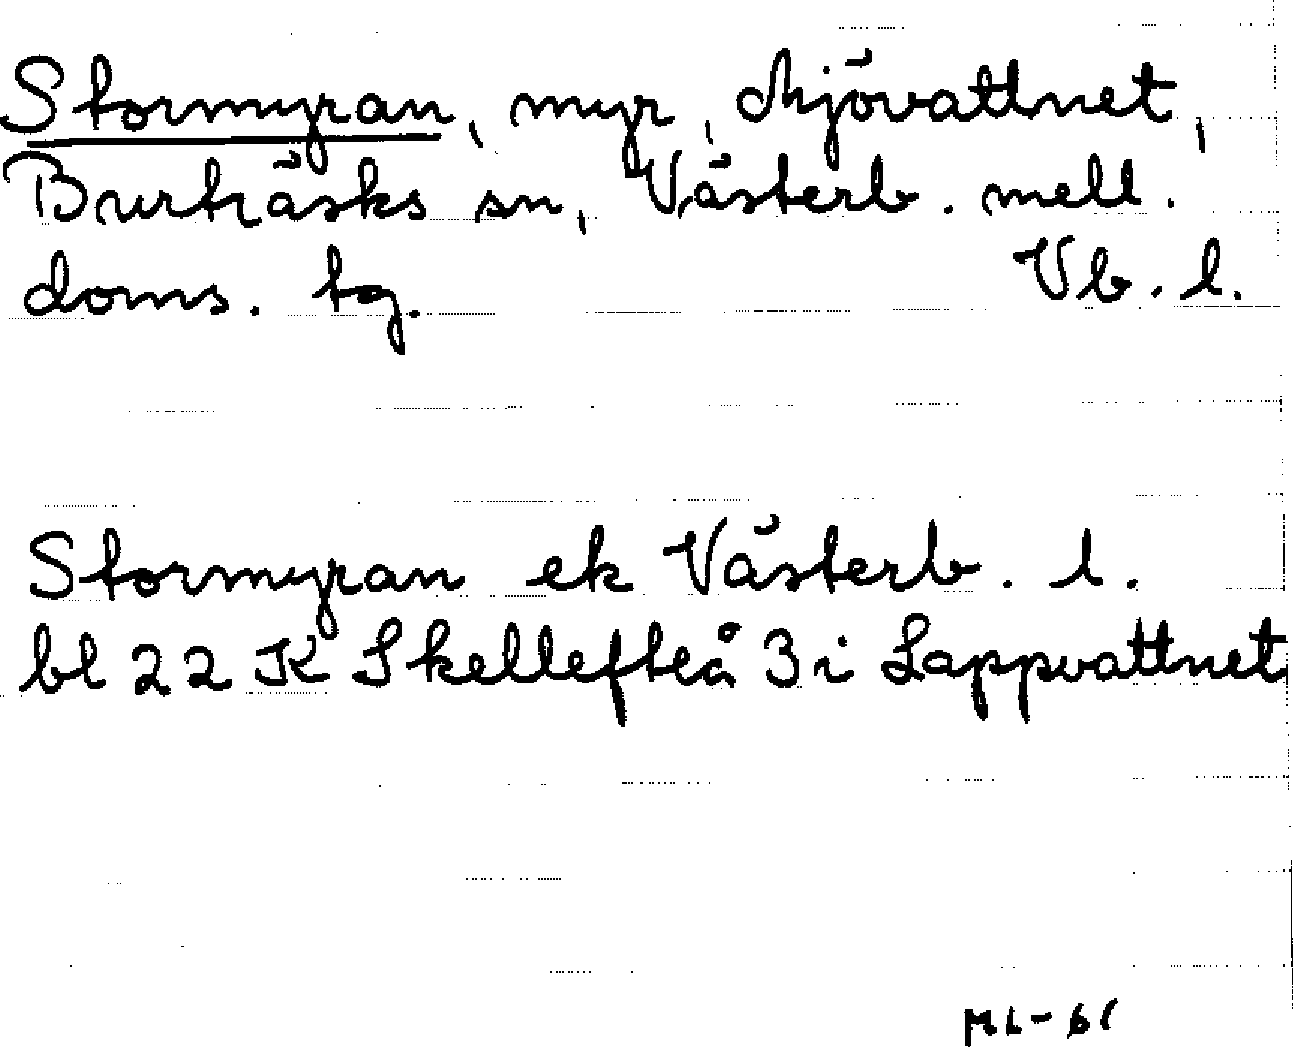 Stormyran, myr, Mjövattnet,
Burträsks sn, Västerb. mell.
doms. tg. Vb. l.
Stormyran ek Västerb. l.
bl 22 K Skellefteå 3 i Lappvattnet
ML-61